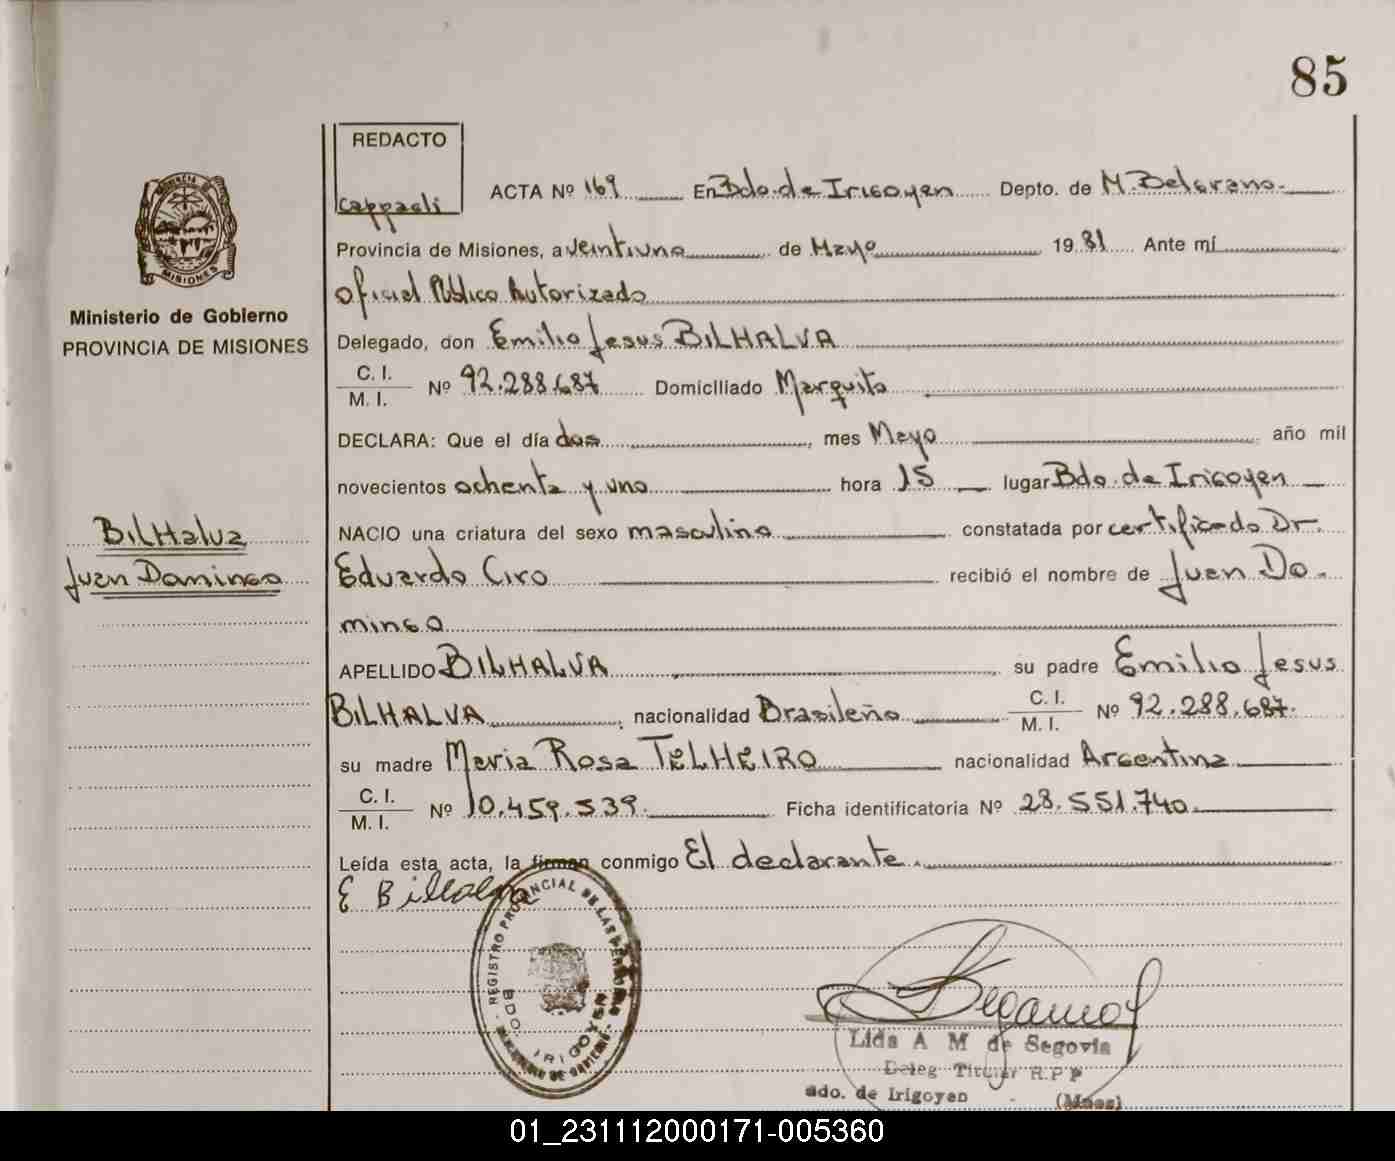 85
REDACTO
Cappaeli
ACTA Nº 169 En Bdo. de Irigoyen Depto. de M. Belgrano.
Provincia de Misiones, a veintiuno de Mayo 1981 Ante mí
Oficial Público Autorizado
Delegado, don Emilio Jesus BILHALVA
C. I.
M. I. Nº 92.288.687 Domiciliado Marquito
DECLARA: Que el día dos, mes Mayo año mil
novecientos ochenta y uno hora 15 lugar Bdo. de Irigoyen
NACIO una criatura del sexo masculino constatada por certificado Dr.
Eduardo Ciro recibió el nombre de Juan Do-
mingo
APELLIDO BILHALVA su padre Emilio Jesus
BILHALVA, nacionalidad Brasileño C. I.
M. I. Nº 92.288.687.
su madre Maria Rosa TELHEIRO nacionalidad Argentina
C. I.
M. I. Nº 10.459.539. Ficha identificatoria Nº 28.551.740.
Leída esta acta, la firman conmigo El declarante.
E Bilhalva
PROVINCIA DE
MISIONES
Ministerio de Gobierno
PROVINCIA DE MISIONES
BILHalva
Juan Domingo
REGISTRO PROVINCIAL DE LAS PERSONAS
BDO. IRIGOYEN
MINISTERIO DE GOBIERNO
Lida A M de Segovia
Deleg Titular R.P.P
Bdo. de Irigoyen - (Mnes)
01_231112000171-005360